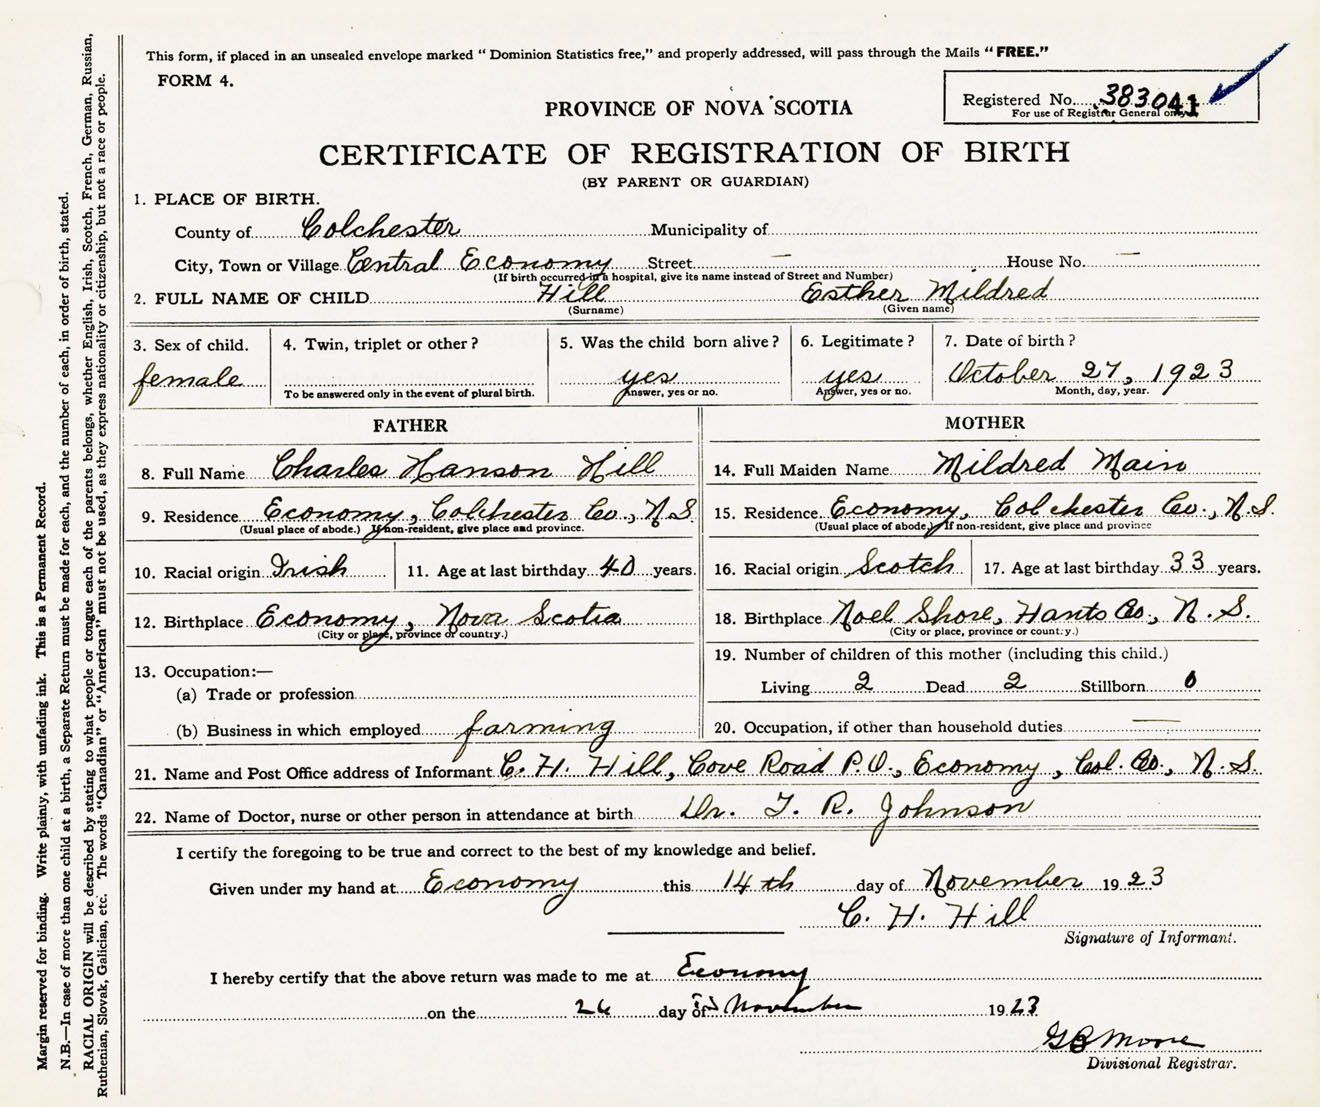 This form, if placed in an unsealed envelope marked "Dominion Statistics free," and properly addressed, will pass through the Mails "FREE."
FORM 4.
Registered No. 383041
For use of Registrar General only
PROVINCE OF NOVA SCOTIA
CERTIFICATE OF REGISTRATION OF BIRTH
(BY PARENT OR GUARDIAN)
1. PLACE OF BIRTH.
County of Colchester Municipality of
City, Town or Village Central Economy Street — House No. —
(If birth occurred in a hospital, give its name instead of Street and Number)
2. FULL NAME OF CHILD Hill Esther Mildred
(Surname) (Given name)
3. Sex of child. 4. Twin, triplet or other? 5. Was the child born alive? 6. Legitimate? 7. Date of birth?
female yes yes October 27, 1923
To be answered only in the event of plural birth. Answer, yes or no. Answer, yes or no. Month, day, year.
FATHER MOTHER
8. Full Name Charles Hanson Hill 14. Full Maiden Name Mildred Main
9. Residence Economy, Colchester Co., N.S. 15. Residence Economy, Colchester Co., N.S.
(Usual place of abode.) If non-resident, give place and province. (Usual place of abode.) If non-resident, give place and province
10. Racial origin Irish 11. Age at last birthday 40 years. 16. Racial origin Scotch 17. Age at last birthday 33 years.
12. Birthplace Economy, Nova Scotia 18. Birthplace Noel Shore, Hants Co., N.S.
(City or place, province or country.) (City or place, province or country.)
13. Occupation:— 19. Number of children of this mother (including this child.)
(a) Trade or profession Living 2 Dead 2 Stillborn 0
(b) Business in which employed farming 20. Occupation, if other than household duties —
21. Name and Post Office address of Informant C. H. Hill, Cove Road P.O., Economy, Col. Co., N.S.
22. Name of Doctor, nurse or other person in attendance at birth Dr. T. R. Johnson
I certify the foregoing to be true and correct to the best of my knowledge and belief.
Given under my hand at Economy this 14th day of November 1923
C. H. Hill
Signature of Informant.
I hereby certify that the above return was made to me at Economy
on the 26 day of November 1923
G B Moore
Divisional Registrar.
Margin reserved for binding. Write plainly, with unfading ink. This is a Permanent Record.
N.B.—In case of more than one child at a birth, a Separate Return must be made for each, and the number of each, in order of birth, stated.
RACIAL ORIGIN will be described by stating to what people or tongue each of the parents belongs, whether English, Irish, Scotch, French, German, Russian,
Ruthenian, Slovak, Galician, etc. The words "Canadian" or "American" must not be used, as they express nationality or citizenship, but not a race or people.